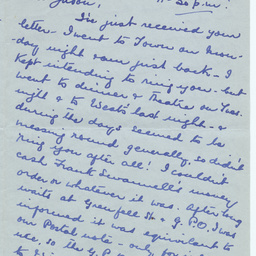 Jason, 11-50 p.m.
I've just received your
letter - I went to Town on Mon-
-day night & am just back - I
kept intending to ring you - but
went to dinner & Theatre on Tues.
night & to West's last night - &
during the days seemed to be
messing round generally, so didn't
ring you after all! I couldn't
cash Frank Swannell's money
order or whatever it was. After long
waits at Grenfell St & G.P.O. I was
informed it was equivalent to
our Postal note - only for
use, so the G.P.